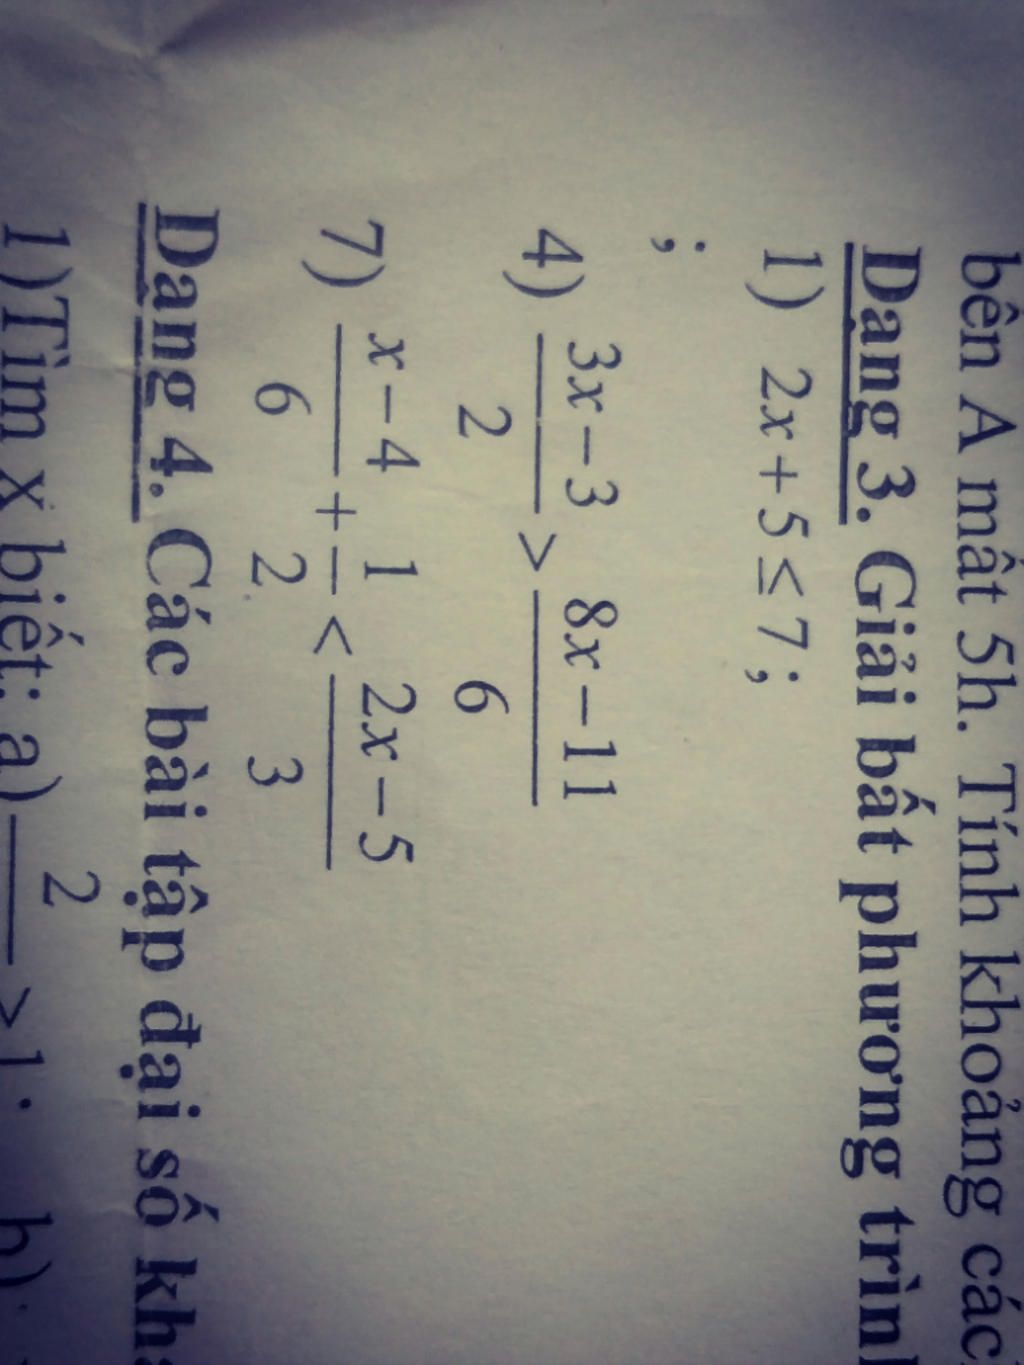 bên A mất 5h. Tính khoảng các
Dạng 3. Giải bất phương trìn
1) 2x + 5 ≤ 7 ;
;
4) \frac{3x - 3}{2} > \frac{8x - 11}{6}
7) \frac{x - 4}{6} + \frac{1}{2} < \frac{2x - 5}{3}
Dạng 4. Các bài tập đại số kh
1)Tìm x biết: a) \frac{2}{} > 1 ; b)